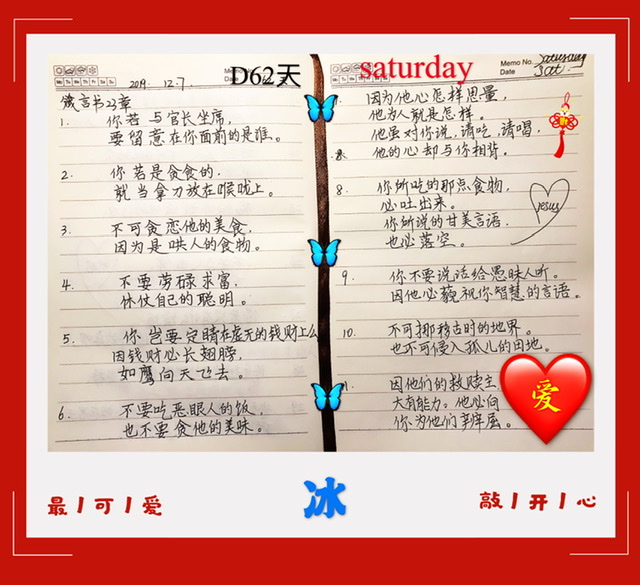 D62天
saturday
Memo No.
Date
Mo Tu We Th Fr Sa Su
2019. 12.7
箴言书23章
1. 你若与官长坐席,
要留意在你面前的是谁。
2. 你若是贪食的,
就当拿刀放在喉咙上。
3. 不可贪恋他的美食,
因为是哄人的食物。
4. 不要劳碌求富,
休仗自己的聪明。
5. 你岂要定睛在虚无的钱财上么
因钱财必长翅膀,
如鹰向天飞去。
6. 不要吃恶眼人的饭,
也不要贪他的美味。
Memo No. Saturday
Date Sat.
因为他心怎样思量,
他为人就是怎样。
他虽对你说,请吃,请喝,
他的心却与你相背。
8. 你所吃的那点食物,
必吐出来。
你所说的甘美言语,
也必落空。
jesus
9. 你不要说话给愚昧人听。
因他必藐视你智慧的言语。
10. 不可挪移古时的地界。
也不可侵入孤儿的田地。
因他们的救赎主,
大有能力。他必向
你为他们辨屈。
爱
最可爱
冰
敲开心